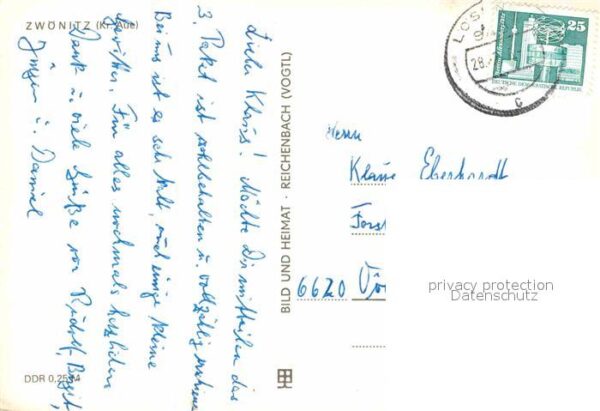 ZWÖNITZ (Kr. Aue)
Lieber Klaus! Möchte Dir mitteilen das
3. Paket ist wohlbehalten u. vollzählig
Bei uns ist es sehr kalt, und einige kleine
Für alles nochmals herzlichen
Dank u. viele Grüße von Rudolf, Birgit,
Jürgen u. Daniel
DDR 0,25
BILD UND HEIMAT · REICHENBACH (VOGTL)
25
DEUTSCHE DEMOKRATISCHE REPUBLIK
28.
c
Herrn
Klaus Eberhardt
Forst
6620
privacy protection
Datenschutz